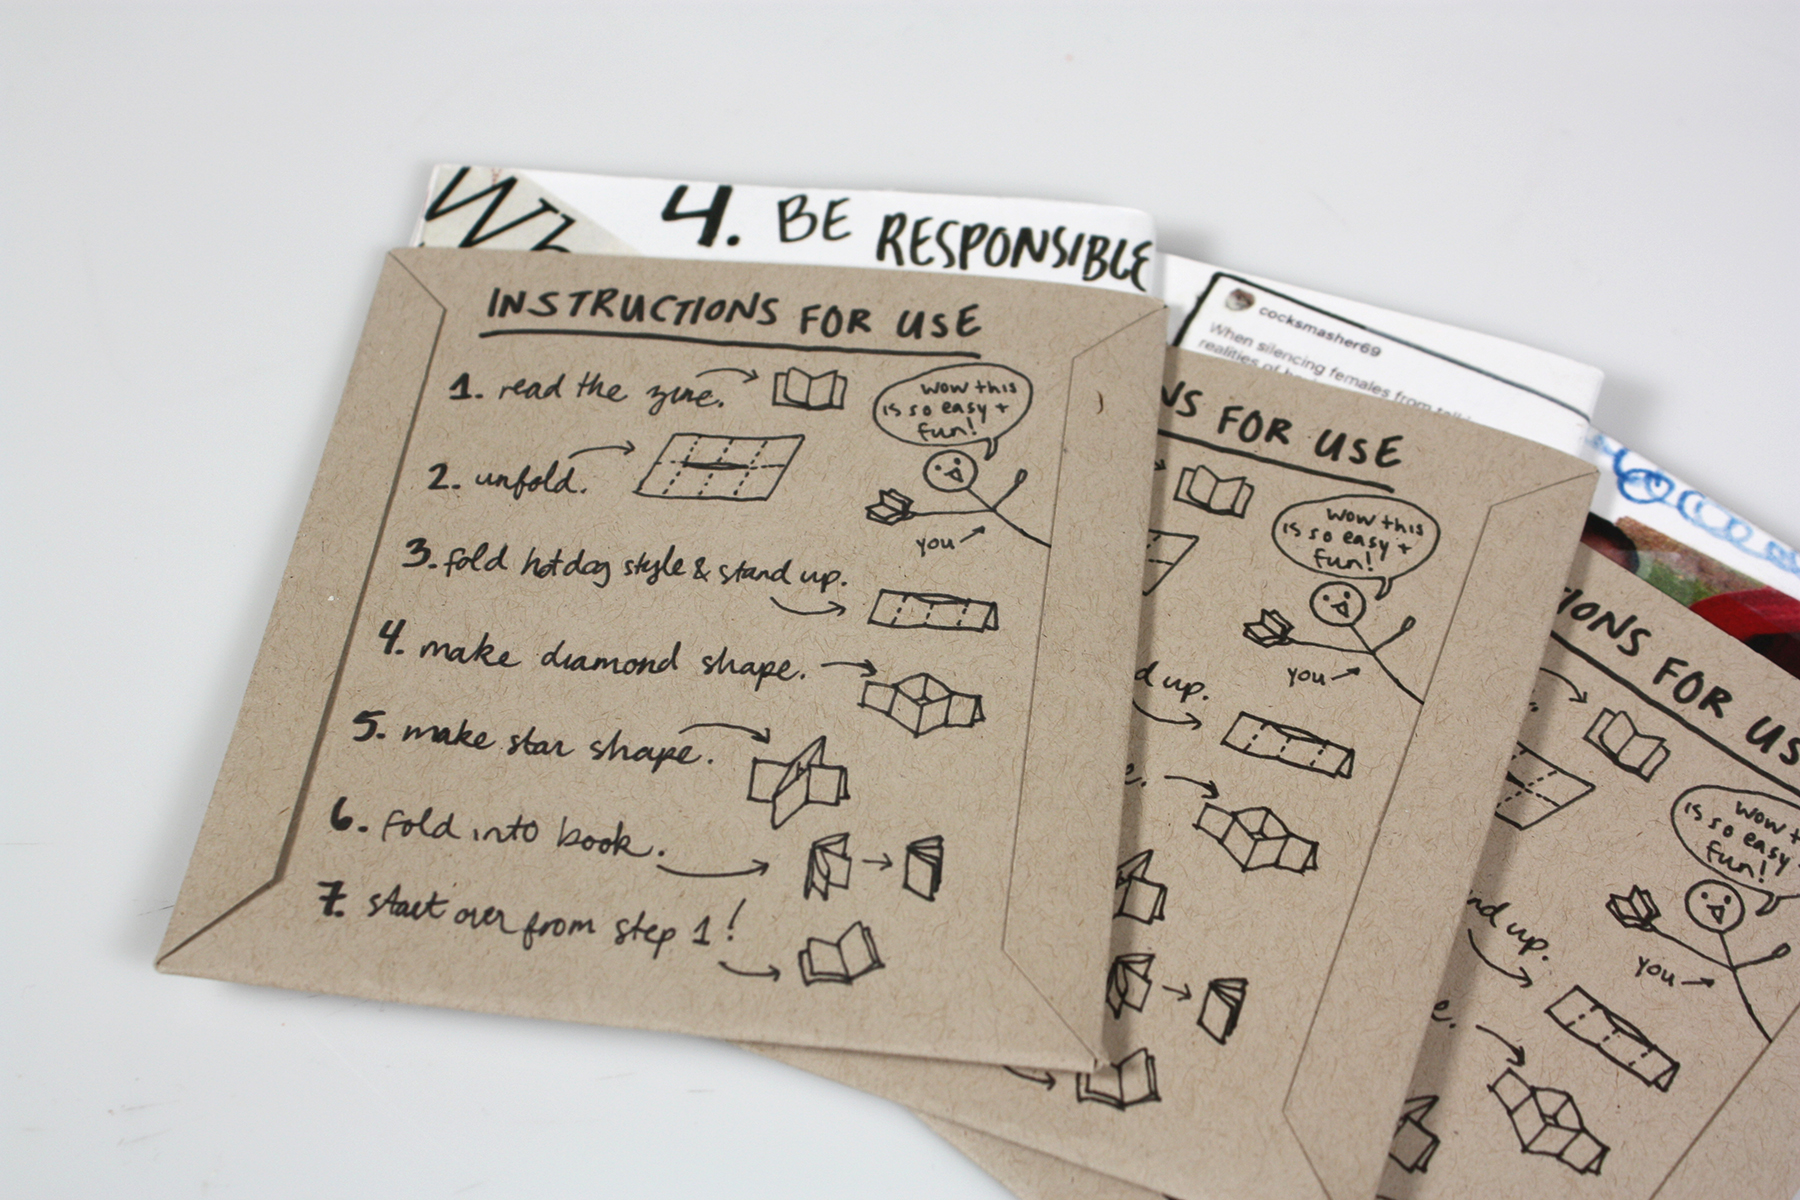 Wh
4. BE RESPONSIBLE
INSTRUCTIONS FOR USE
1. read the zine.
wow this
is so easy +
fun!
2. unfold.
you
3. fold hotdog style & stand up.
4. make diamond shape.
5. make star shape.
6. fold into book.
7. start over from step 1!
cocksmasher69
When silencing females from
realities of
NS FOR USE
wow this
is so easy +
fun!
you
d up.
e.
IONS FOR US
wow t
is so easy
fun!
you
nd up.
e.